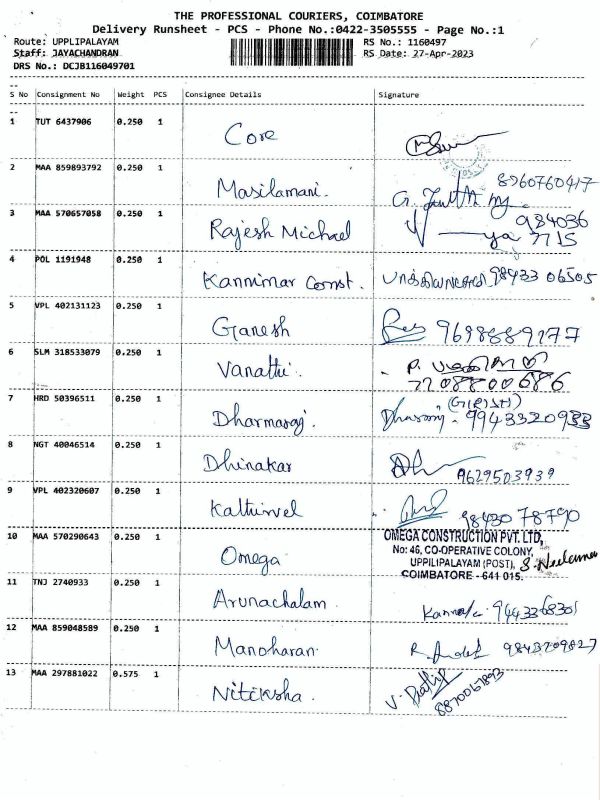 THE PROFESSIONAL COURIERS, COIMBATORE
Delivery Runsheet - PCS - Phone No.:0422-3505555 - Page No.:1
Route: UPPLIPALAYAM RS No.: 1160497
Staff: JAYACHANDRAN RS Date: 27-Apr-2023
DRS No.: DCJB116049701
S No Consignment No Weight PCS Consignee Details Signature
1 TUT 6437906 0.250 1 Core
2 MAA 859893792 0.250 1 Masilamani. 8960760417
3 MAA 570657058 0.250 1 Rajesh Michael 984036
7715
4 POL 1191948 0.250 1 Kannimar Const. 98433 06505
5 VPL 402131123 0.250 1 Ganesh 9698889177
6 SLM 318533079 0.250 1 Vanathi.
7708800686
7 HRD 50396511 0.250 1 Dharmaraj. 9943320933
8 NGT 40046514 0.250 1 Dhinakar 9629503939
9 VPL 402320607 0.250 1 Kathirvel 98430 78790
10 MAA 570290643 0.250 1 Omega OMEGA CONSTRUCTION PVT. LTD,
No: 46, CO-OPERATIVE COLONY,
UPPILIPALAYAM (POST),
COIMBATORE - 641 015.
11 TNJ 2740933 0.250 1 Arunachalam 9443368301
12 MAA 859048589 0.250 1 Manoharan 9843209827
13 MAA 297881022 0.575 1 Nitiksha. 8870067893